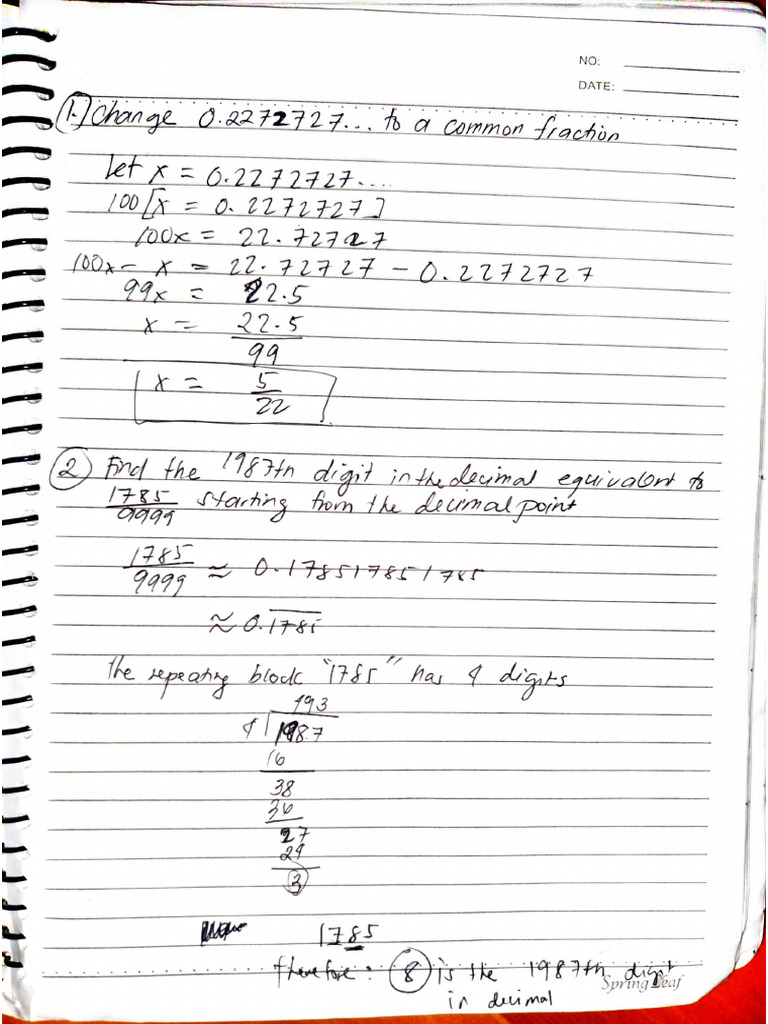 NO:
DATE:
1.) Change 0.2272727... to a common fraction
Let x = 0.2272727....
100[x = 0.2272727]
100x = 22.72727
100x - x = 22.72727 - 0.2272727
99x = 22.5
x = 22.5
99
x = 5
22
2 Find the 1987th digit in the decimal equivalent to
1785
9999 starting from the decimal point
1785
9999 ≈ 0.178517851785
≈ 0.1785
The repeating block "1785" has 4 digits
493
4 1987
16
38
36
27
24
3
1785
therefore: 8 is the 1987th digit
Spring Leaf
in decimal